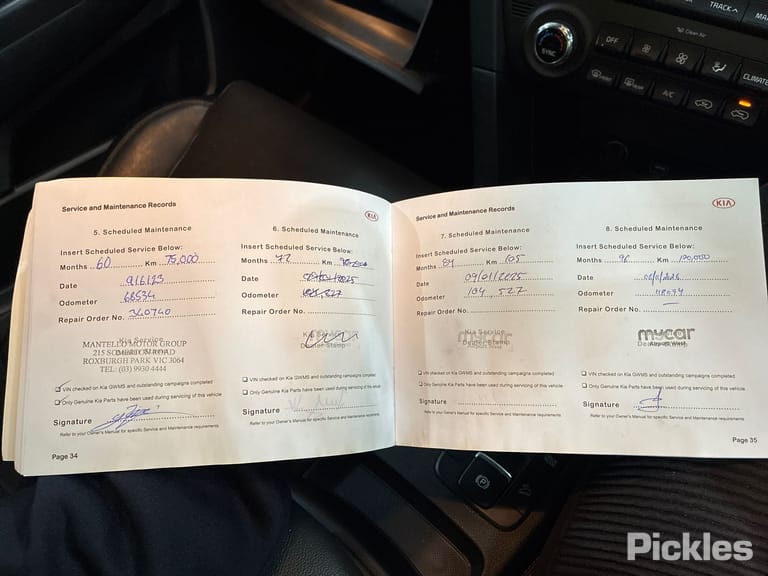 TRACK
OFF
Clean Air
SYNC
CLIMATE
A/C
Service and Maintenance Records
KIA
5. Scheduled Maintenance
Insert Scheduled Service Below:
Months 60 Km 75,000
Date 9/6/23
Odometer 68534
Repair Order No. 340740
Kia Service
Dealer Stamp
MANTELLO MOTOR GROUP
215 SOMERTON ROAD
ROXBURGH PARK VIC 3064
TEL: (03) 9930 4444
VIN checked on Kia GWMS and outstanding campaigns completed
Only Genuine Kia Parts have been used during servicing of this vehicle
Signature
Refer to your Owner's Manual for specific Service and Maintenance requirements
Page 34
6. Scheduled Maintenance
Insert Scheduled Service Below:
Months 72 Km
Date
Odometer
Repair Order No.
Kia Service
Dealer Stamp
VIN checked on Kia GWMS and outstanding campaigns completed
Only Genuine Kia Parts have been used during servicing of this vehicle
Signature
Refer to your Owner's Manual for specific Service and Maintenance requirements
Service and Maintenance Records
KIA
7. Scheduled Maintenance
Insert Scheduled Service Below:
Months 84 Km 105
Date 09/01/2025
Odometer 104 527
Repair Order No.
Kia Service
mycar
Dealer Stamp
VIN checked on Kia GWMS and outstanding campaigns completed
Only Genuine Kia Parts have been used during servicing of this vehicle
Signature
Refer to your Owner's Manual for specific Service and Maintenance requirements
8. Scheduled Maintenance
Insert Scheduled Service Below:
Months 96 Km 120,000
Date
Odometer
Repair Order No. —
mycar
Airport West
VIN checked on Kia GWMS and outstanding campaigns completed
Only Genuine Kia Parts have been used during servicing of this vehicle
Signature
Refer to your Owner's Manual for specific Service and Maintenance requirements
Page 35
P
Pickles